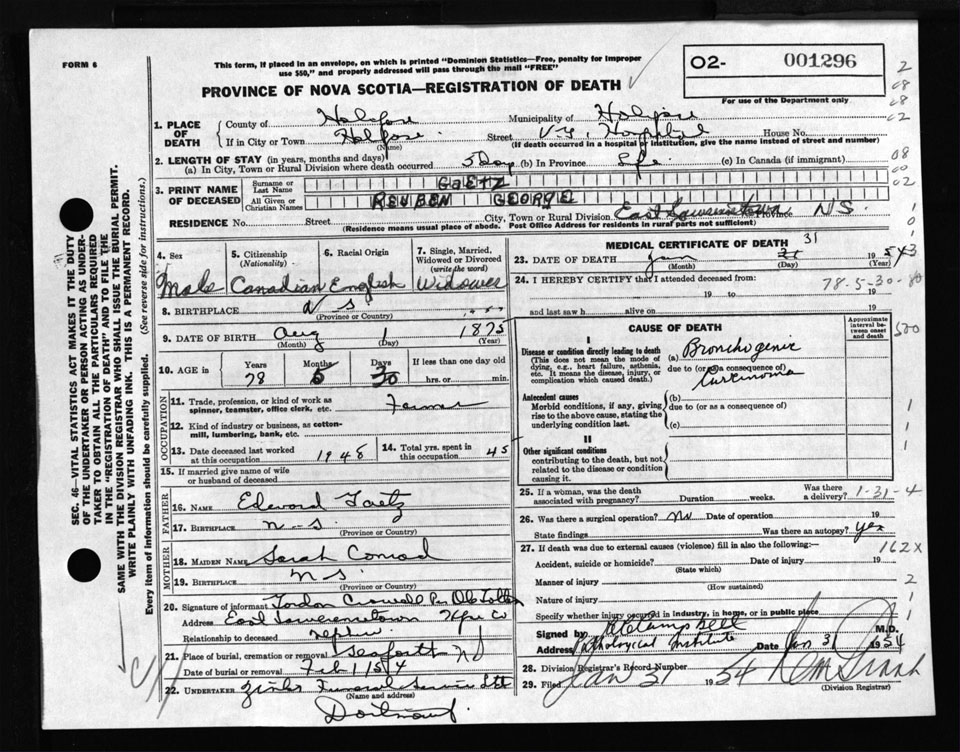 FORM 6
This form, if placed in an envelope, on which is printed "Dominion Statistics—Free, penalty for improper
use $50," and properly addressed will pass through the mail "FREE"
O2- 001296
For use of the Department only
PROVINCE OF NOVA SCOTIA—REGISTRATION OF DEATH
1. PLACE OF DEATH
County of Halifax Municipality of Halifax
If in City or Town Halifax Street V.G. Hospital House No.
(Name) (If death occurred in a hospital or institution, give the name instead of street and number)
2. LENGTH OF STAY (in years, months and days)
(a) In City, Town or Rural Division where death occurred 5 Days (b) In Province Life (c) In Canada (if immigrant)
3. PRINT NAME OF DECEASED
Surname or Last Name GAETZ
All Given or Christian Names REUBEN GEORGE
RESIDENCE No. Street City, Town or Rural Division East Lawrencetown Province N.S.
(Residence means usual place of abode. Post Office Address for residents in rural parts not sufficient)
4. Sex Male
5. Citizenship (Nationality) Canadian
6. Racial Origin English
7. Single, Married, Widowed or Divorced (write the word) Widower
8. BIRTHPLACE N S
(Province or Country)
9. DATE OF BIRTH Aug 1 1875
(Month) (Day) (Year)
10. AGE in Years 78 Months 5 Days 30 If less than one day old
hrs. or min.
OCCUPATION
11. Trade, profession, or kind of work as
spinner, teamster, office clerk, etc. Farmer
12. Kind of industry or business, as cotton-
mill, lumbering, bank, etc.
13. Date deceased last worked at this occupation 1948
14. Total yrs. spent in this occupation 45
15. If married give name of wife
or husband of deceased
FATHER
16. NAME Edward Gaetz
17. BIRTHPLACE N.S.
(Province or Country)
MOTHER
18. MAIDEN NAME Sarah Conrad
19. BIRTHPLACE N S.
(Province or Country)
20. Signature of informant Gordon Crowell Per
Address East Lawrencetown Hfx Co
Relationship to deceased Nephew
21. Place of burial, cremation or removal Seaforth N S
Date of burial or removal Feb 1/54
22. UNDERTAKER Funeral Service Ltd
(Name and address)
Dartmouth
MEDICAL CERTIFICATE OF DEATH
31
23. DATE OF DEATH Jan 31 1954
(Month) (Day)
24. I HEREBY CERTIFY that I attended deceased from:
78-5-30-80
19 to 19
and last saw h alive on 19
CAUSE OF DEATH
Approximate interval between onset and death
I
Disease or condition directly leading to death
(This does not mean the mode of dying, e.g., heart failure, asthenia, etc. It means the disease, injury, or complication which caused death.)
(a) Bronchogenic
due to (or as a consequence of)
Carcinoma
Antecedent causes
Morbid conditions, if any, giving rise to the above cause, stating the underlying condition last.
(b)
due to (or as a consequence of)
(c)
II
Other significant conditions
contributing to the death, but not related to the disease or condition causing it.
25. If a woman, was the death associated with pregnancy? Duration weeks. Was there a delivery? 1-31-4
26. Was there a surgical operation? No Date of operation 19
State findings Was there an autopsy? yes
27. If death was due to external causes (violence) fill in also the following:—
162X
Accident, suicide or homicide? Date of injury 19
(State which)
Manner of injury
(How sustained)
Nature of injury
Specify whether injury occurred in industry, in home, or in public place
Signed by Campbell M.D.
Address Pathological Institute Date Jan 31 1954
28. Division Registrar's Record Number
29. Filed Jan 31 1954
(Division Registrar)
SEC. 46—VITAL STATISTICS ACT MAKES IT THE DUTY
OF THE UNDERTAKER OR PERSON ACTING AS UNDER-
TAKER TO OBTAIN ALL THE PARTICULARS REQUIRED
IN THE "REGISTRATION OF DEATH" AND TO FILE THE
SAME WITH THE DIVISION REGISTRAR WHO SHALL ISSUE THE BURIAL PERMIT.
WRITE PLAINLY WITH UNFADING INK. THIS IS A PERMANENT RECORD.
Every item of information should be carefully supplied. (See reverse side for instructions.)